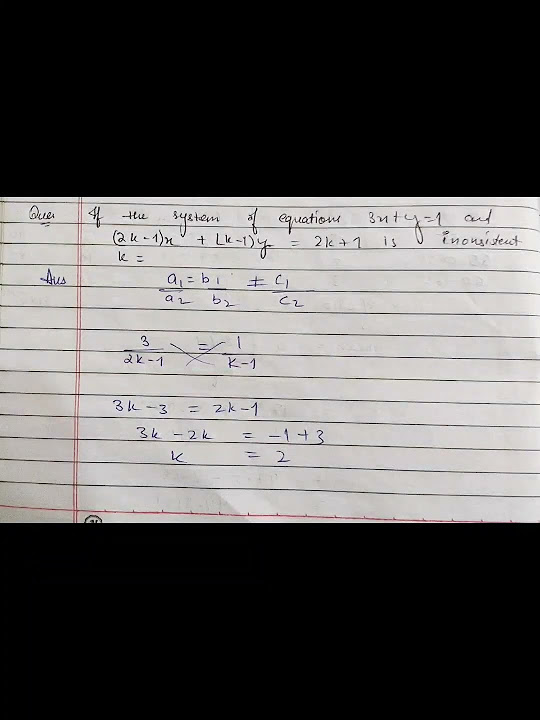 Ques If the system of equations 3x+y=1 and
(2k-1)x + (k-1)y = 2k+1 is inonsistent
k =
Ans a1/a2 = b1/b2 ≠ c1/c2
3/2k-1 = 1/k-1
3k-3 = 2k-1
3k-2k = -1+3
k = 2